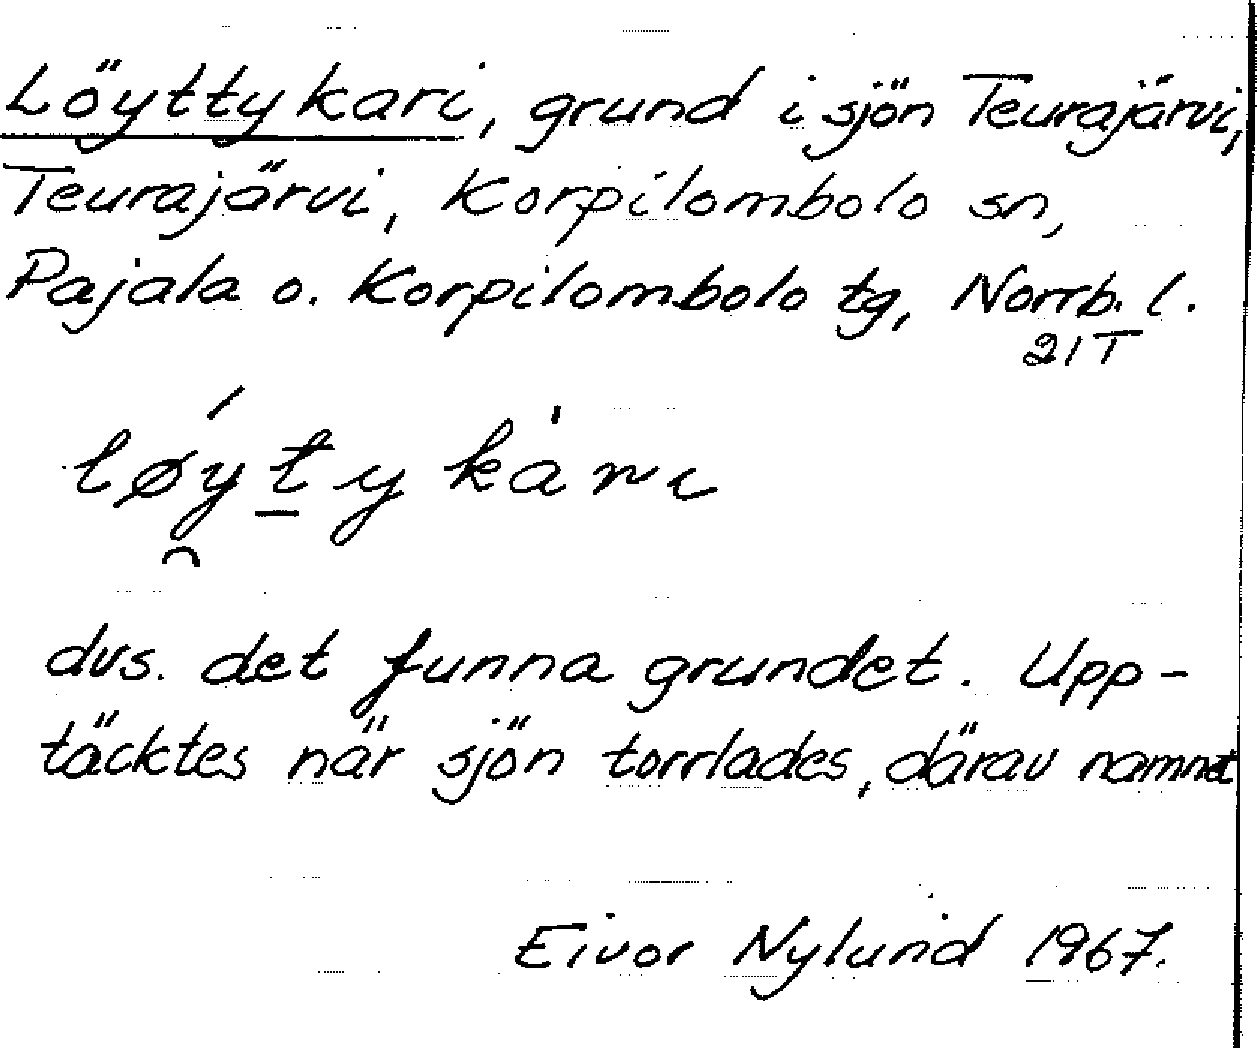 Löyttykari, grund i sjön Teurajärvi,
Teurajärvi, Korpilombolo sn,
Pajala o. Korpilombolo tg, Norrb. l.
21 T
lǿy̯t̠y kȧri
dvs. det funna grundet. Upp-
täcktes när sjön torrlades, därav namnet
Eivor Nylund 1967.